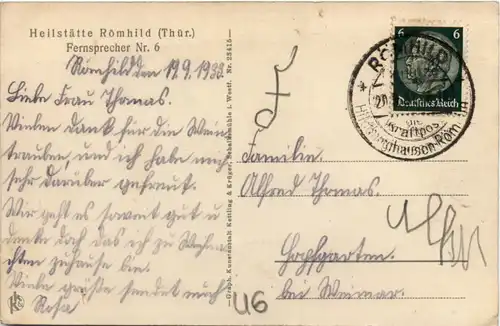 Heilstätte Römhild (Thür.)
Fernsprecher Nr. 6
Römhild den 19.9.1933.
Liebe Frau Thomas.
Vielen Dank für die Wein
trauben, und ich habe mich
sehr darüber gefreut.
Mir geht es soweit gut u
denke doch das ich zu Weihna
chten zuhause bin.
Viele grüße sendet euch
Rosa
Graph. Kunstanstalt Kettling & Krüger, Schalksmühle i. Westf. Nr. 23415
6 6
Deutsches Reich
RÖMHILD
20
Kraftpost
Hildburghausen-Römhild
Familie
Alfred Thomas.
Hopfgarten.
bei Weimar.
U6